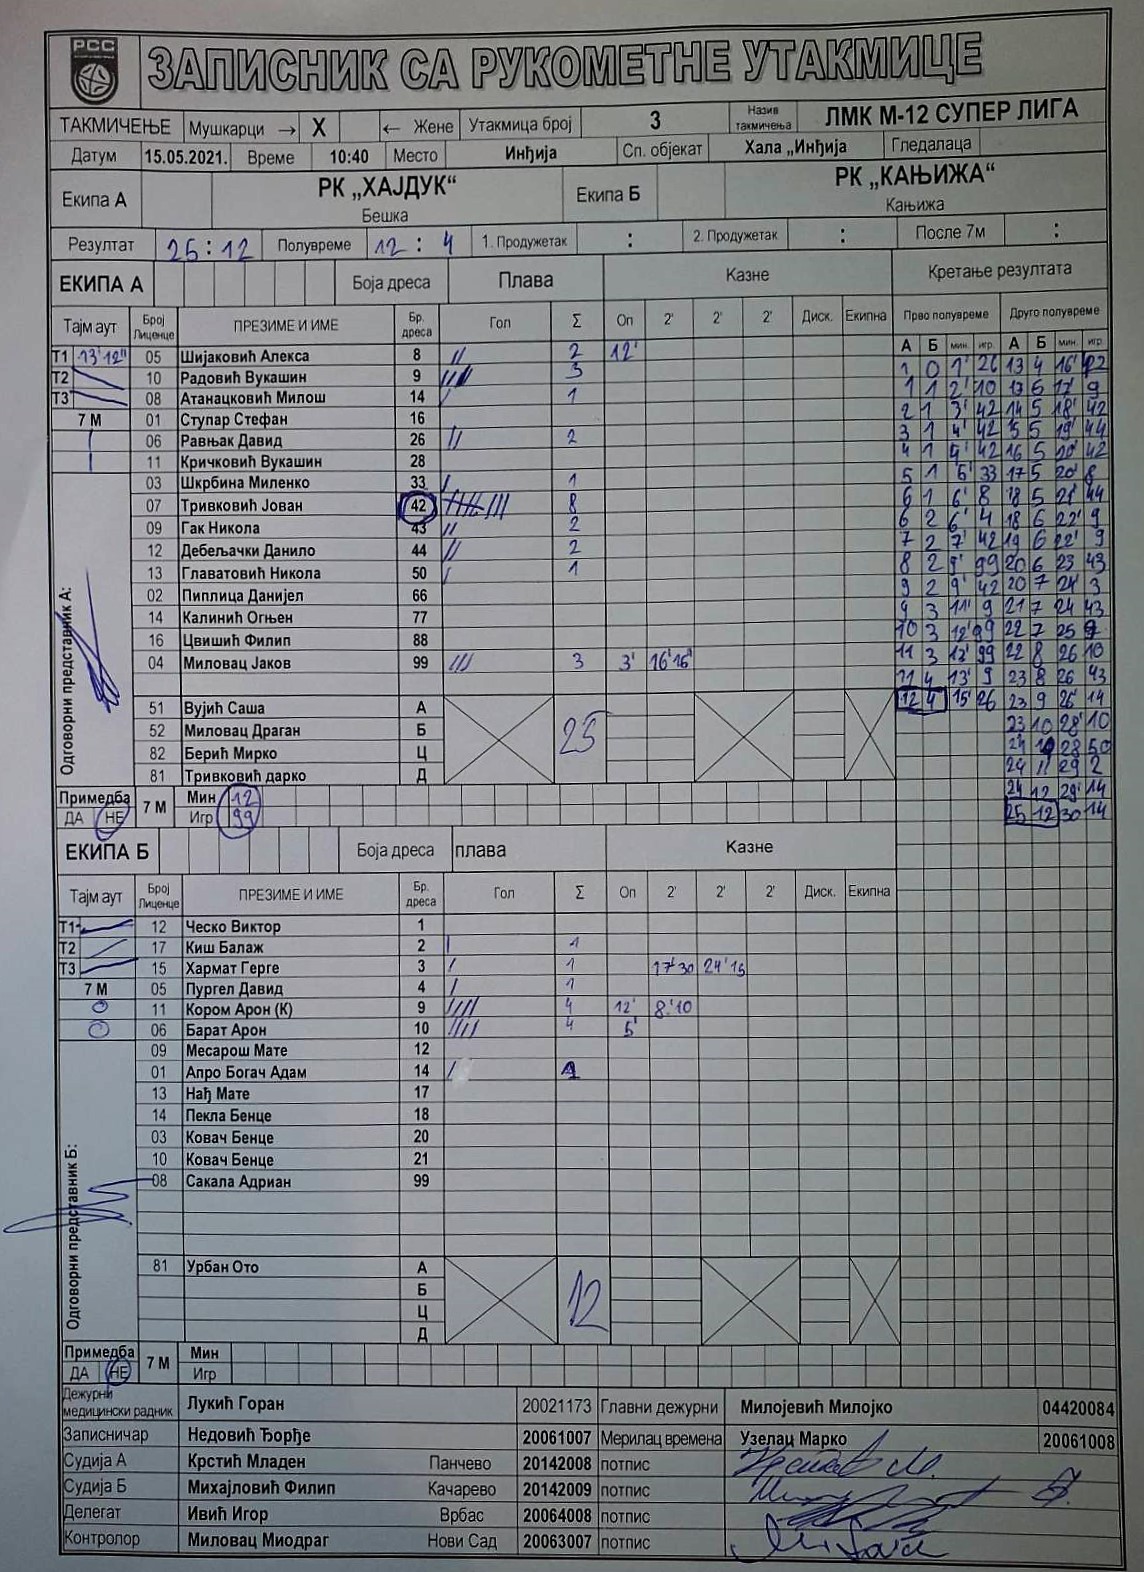 РСС
ЗАПИСНИК СА РУКОМЕТНЕ УТАКМИЦЕ
ТАКМИЧЕЊЕ Мушкарци → X ← Жене Утакмица број 3 Назив такмичења ЛМК М-12 СУПЕР ЛИГА
Датум 15.05.2021. Време 10:40 Место Инђија Сп. објекат Хала „Инђија Гледалаца
Екипа А РК „ХАЈДУК“ Бешка Екипа Б РК „КАЊИЖА“ Кањижа
Резултат 25:12 Полувреме 12:4 1. Продужетак : 2. Продужетак : После 7м :
ЕКИПА А Боја дреса Плава Казне Кретање резултата
Тајм аут Број Лиценце ПРЕЗИМЕ И ИМЕ Бр. дреса Гол Σ Оп 2' 2' 2' Диск. Екипна Прво полувреме Друго полувреме
А Б мин. игр. А Б мин. игр.
Т1 13'12" 05 Шијаковић Алекса 8 // 2 12' 1 0 1' 26 13 4 16' 22
Т2 10 Радовић Вукашин 9 /// 3 1 1 2' 10 13 17' 9
Т3 08 Атанацковић Милош 14 / 1 2 1 3' 42 14 5 18' 42
7 М 01 Ступар Стефан 16 3 1 4' 42 15 5 19' 44
06 Равњак Давид 26 // 2 4 1 42 16 5 20' 42
11 Кричковић Вукашин 28 5 1 33 17 5 20' 8
03 Шкрбина Миленко 33 / 1 6 1 6' 8 18 5 21' 44
07 Тривковић Јован 42 8 6 2 6' 4 18 6 22' 9
09 Гак Никола 43 // 2 7 2 7' 42 19 6 22' 9
12 Дебељачки Данило 44 // 2 8 2 99 20 6 23 43
13 Главатовић Никола 50 / 1 9 2 9' 42 20 7 24' 3
02 Пиплица Данијел 66 9 3 11' 9 21 7 24 43
14 Калинић Огњен 77 10 3 12' 99 22 7 25 9
16 Цвишић Филип 88 11 3 99 22 8 26 10
04 Миловац Јаков 99 /// 3 3' 16'16" 11 4 13' 9 23 8 26 43
51 Вујић Саша А 12 4 15' 26 23 9 26' 14
52 Миловац Драган Б 25 23 10 28' 10
82 Берић Мирко Ц 24 10 28 50
81 Тривковић дарко Д 24 11 29 2
Одговорни представник А:
Примедба ДА НЕ 7 М Мин 12 24 12 29' 14
Игр 99 25 12 30 14
ЕКИПА Б Боја дреса плава Казне
Тајм аут Број Лиценце ПРЕЗИМЕ И ИМЕ Бр. дреса Гол Σ Оп 2' 2' 2' Диск. Екипна
Т1 12 Ческо Виктор 1
Т2 17 Киш Балаж 2 / 1
Т3 15 Хармат Герге 3 / 1 17'30 24'15
7 М 05 Пургел Давид 4 / 1
0 11 Кором Арон (К) 9 //// 4 12' 8'10
0 06 Барат Арон 10 //// 4 5'
09 Месарош Мате 12
01 Апро Богач Адам 14 / 1
13 Нађ Мате 17
14 Пекла Бенце 18
03 Ковач Бенце 20
10 Ковач Бенце 21
08 Сакала Адриан 99
Одговорни представник Б:
81 Урбан Ото А
Б 12
Ц
Д
Примедба ДА НЕ 7 М Мин
Игр
Дежурни медицински радник Лукић Горан 20021173 Главни дежурни Милојевић Милојко 04420084
Записничар Недовић Ђорђе 20061007 Мерилац времена Узелац Марко 20061008
Судија А Крстић Младен Панчево 20142008 потпис
Судија Б Михајловић Филип Качарево 20142009 потпис
Делегат Ивић Игор Врбас 20064008 потпис
Контролор Миловац Миодраг Нови Сад 20063007 потпис